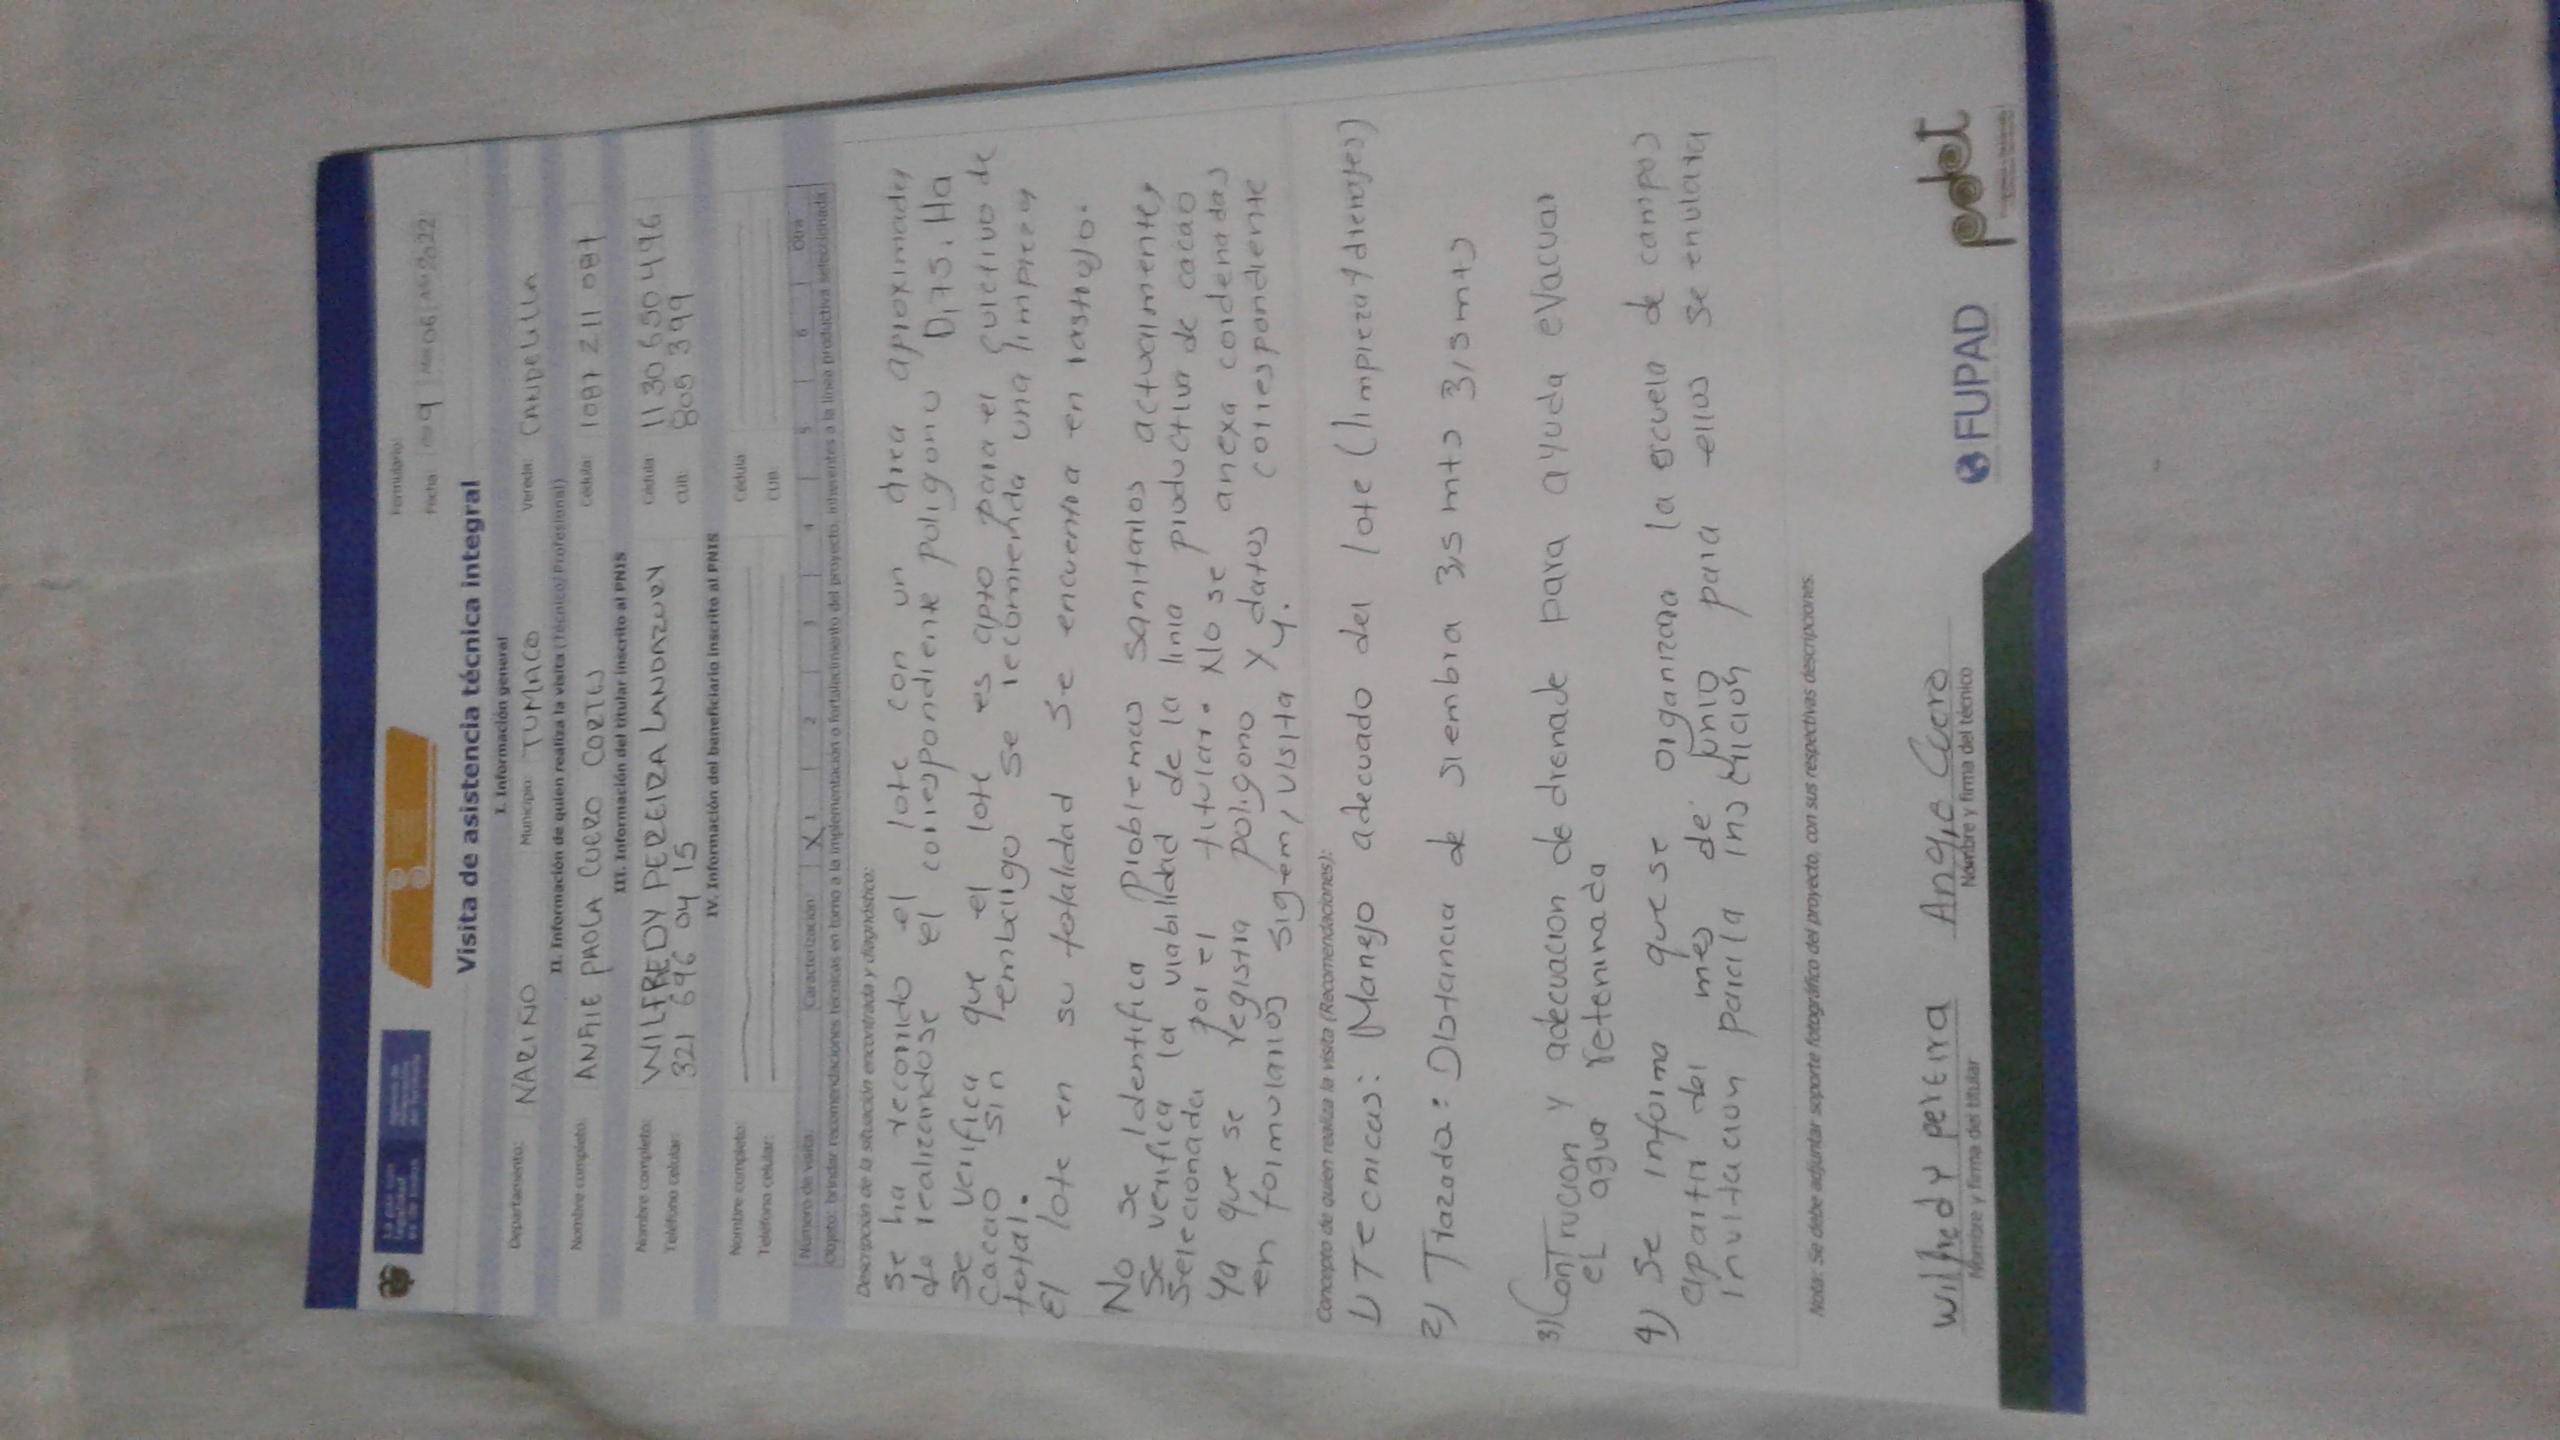 Formulario:
Fecha: Día 9 Mes 06 Año 2022
Visita de asistencia técnica integral
I. Información general
Departamento: NARINO Municipio: TUMACO Vereda: CANDELILLA
II. Información de quien realiza la visita (Técnico/Profesional)
Nombre completo: ANGIE PAOLA CUERO CORTES Cédula: 1087 211 087
III. Información del titular inscrito al PNIS
Nombre completo: WILFREDY PEREIRA LANDAZURY Cédula 11 30 650 496
Teléfono celular: 321 696 04 15 CUB: 805 399
IV. Información del beneficiario inscrito al PNIS
Nombre completo: Cédula
Teléfono celular: CUB:
Número de visita: Caracterización X 1 2 3 4 5 6 Otra
Objeto: brindar recomendaciones técnicas en torno a la implementación o fortalecimiento del proyecto, inherentes a la línea productiva seleccionada
Descripción de la situación encontrada y diagnóstico:
Se ha recorrido el lote con un area aproximada
de realizandose el correspondiente poligono 0,75. Ha
se verifica que el lote es apto para el cultivo de
cacao sin embargo se recomienda una limpieza
total.
El lote en su totalidad se encuentra en rastrojo.
No se identifica problemas sanitarios actualmente,
se verifica la viabilidad de la linia productiva de cacao
Selecionada por el titular. No se anexa cordenadas
ya que se registra poligono y datos correspondiente
en formularios sigem, visita y.
Concepto de quien realiza la visita (Recomendaciones):
1) Tecnicas: Manejo adecuado del lote (limpieza y drenajes)
2) Trazado: Distancia de siembra 3,5 mts 3,5 mts
3) Contrucion y adecuacion de drenade para ayuda evacuar
el agua reteninada
4) Se informa que se organizara la escuela de campos
apartir del mes de junio para ellos se enulara
inuitacion para la inscricion
Nota: Se debe adjuntar soporte fotográfico del proyecto, con sus respectivas descripciones.
wilfredy pereira Angie Cuero
Nombre y firma del titular Nombre y firma del técnico
FUPAD pdet